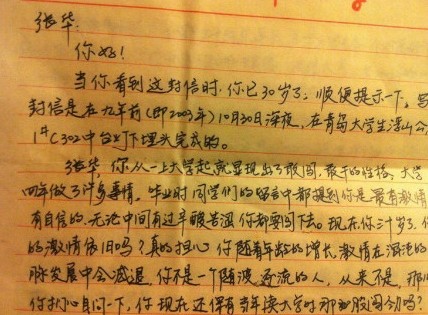 张华:
你好!
当你看到这封信时,你已30岁了。顺便提示一下,写
封信是在九年前(即2003年)10月30日深夜,在青岛大学生浮山公
1#C302中台灯下埋头完成的。
张华,你从一上大学起就显现出了敢闯、敢干的性格,大学
四年做了许多事情。毕业时同学们的留言中都提到你是最有激情
有自信的,无论中间有过辛酸苦涩你都要闯下去。现在,你三十岁了,你
的激情依旧吗?真的担心你随着年龄的增长,激情在
脉发展中会减退,你不是一个随波逐流的人,从来不是,那
你扪心自问一下,你现在还保有当年读大学时那种股闯劲吗?